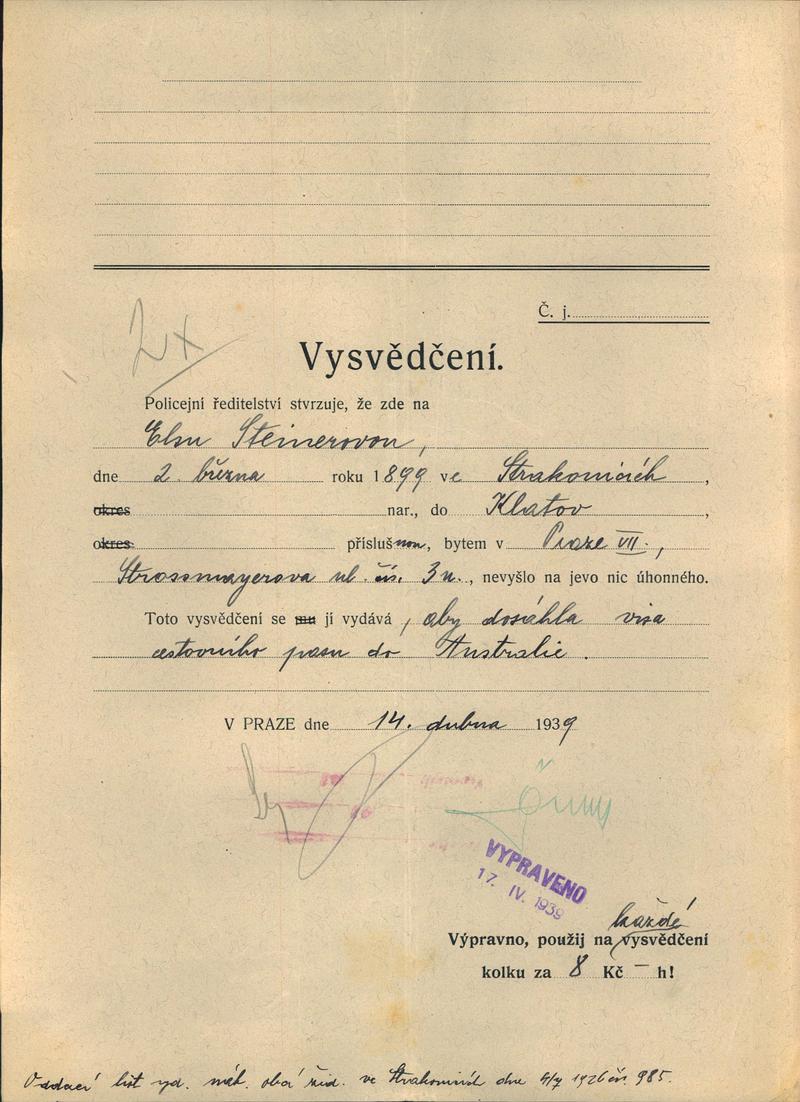 Č. j.
2x
Vysvědčení.
Policejní ředitelství stvrzuje, že zde na
Elsu Steinerovou,
dne 2. března roku 1899 ve Strakonicích,
okres nar., do Klatov,
okres příslušnou, bytem v Praze VII.,
Strossmayerova ul. čís. 3n., nevyšlo na jevo nic úhonného.
Toto vysvědčení se mu jí vydává, aby dosáhla visa
cestovního pasu do Australie.
V PRAZE dne 14. dubna 1939
VYPRAVENO
17. IV. 1939
každé
Výpravno, použij na vysvědčení
kolku za 8 Kč — h!
Oddací list vyd. náb. obcí žid. ve Strakonicích dne 4/7 1926 čís. 985.